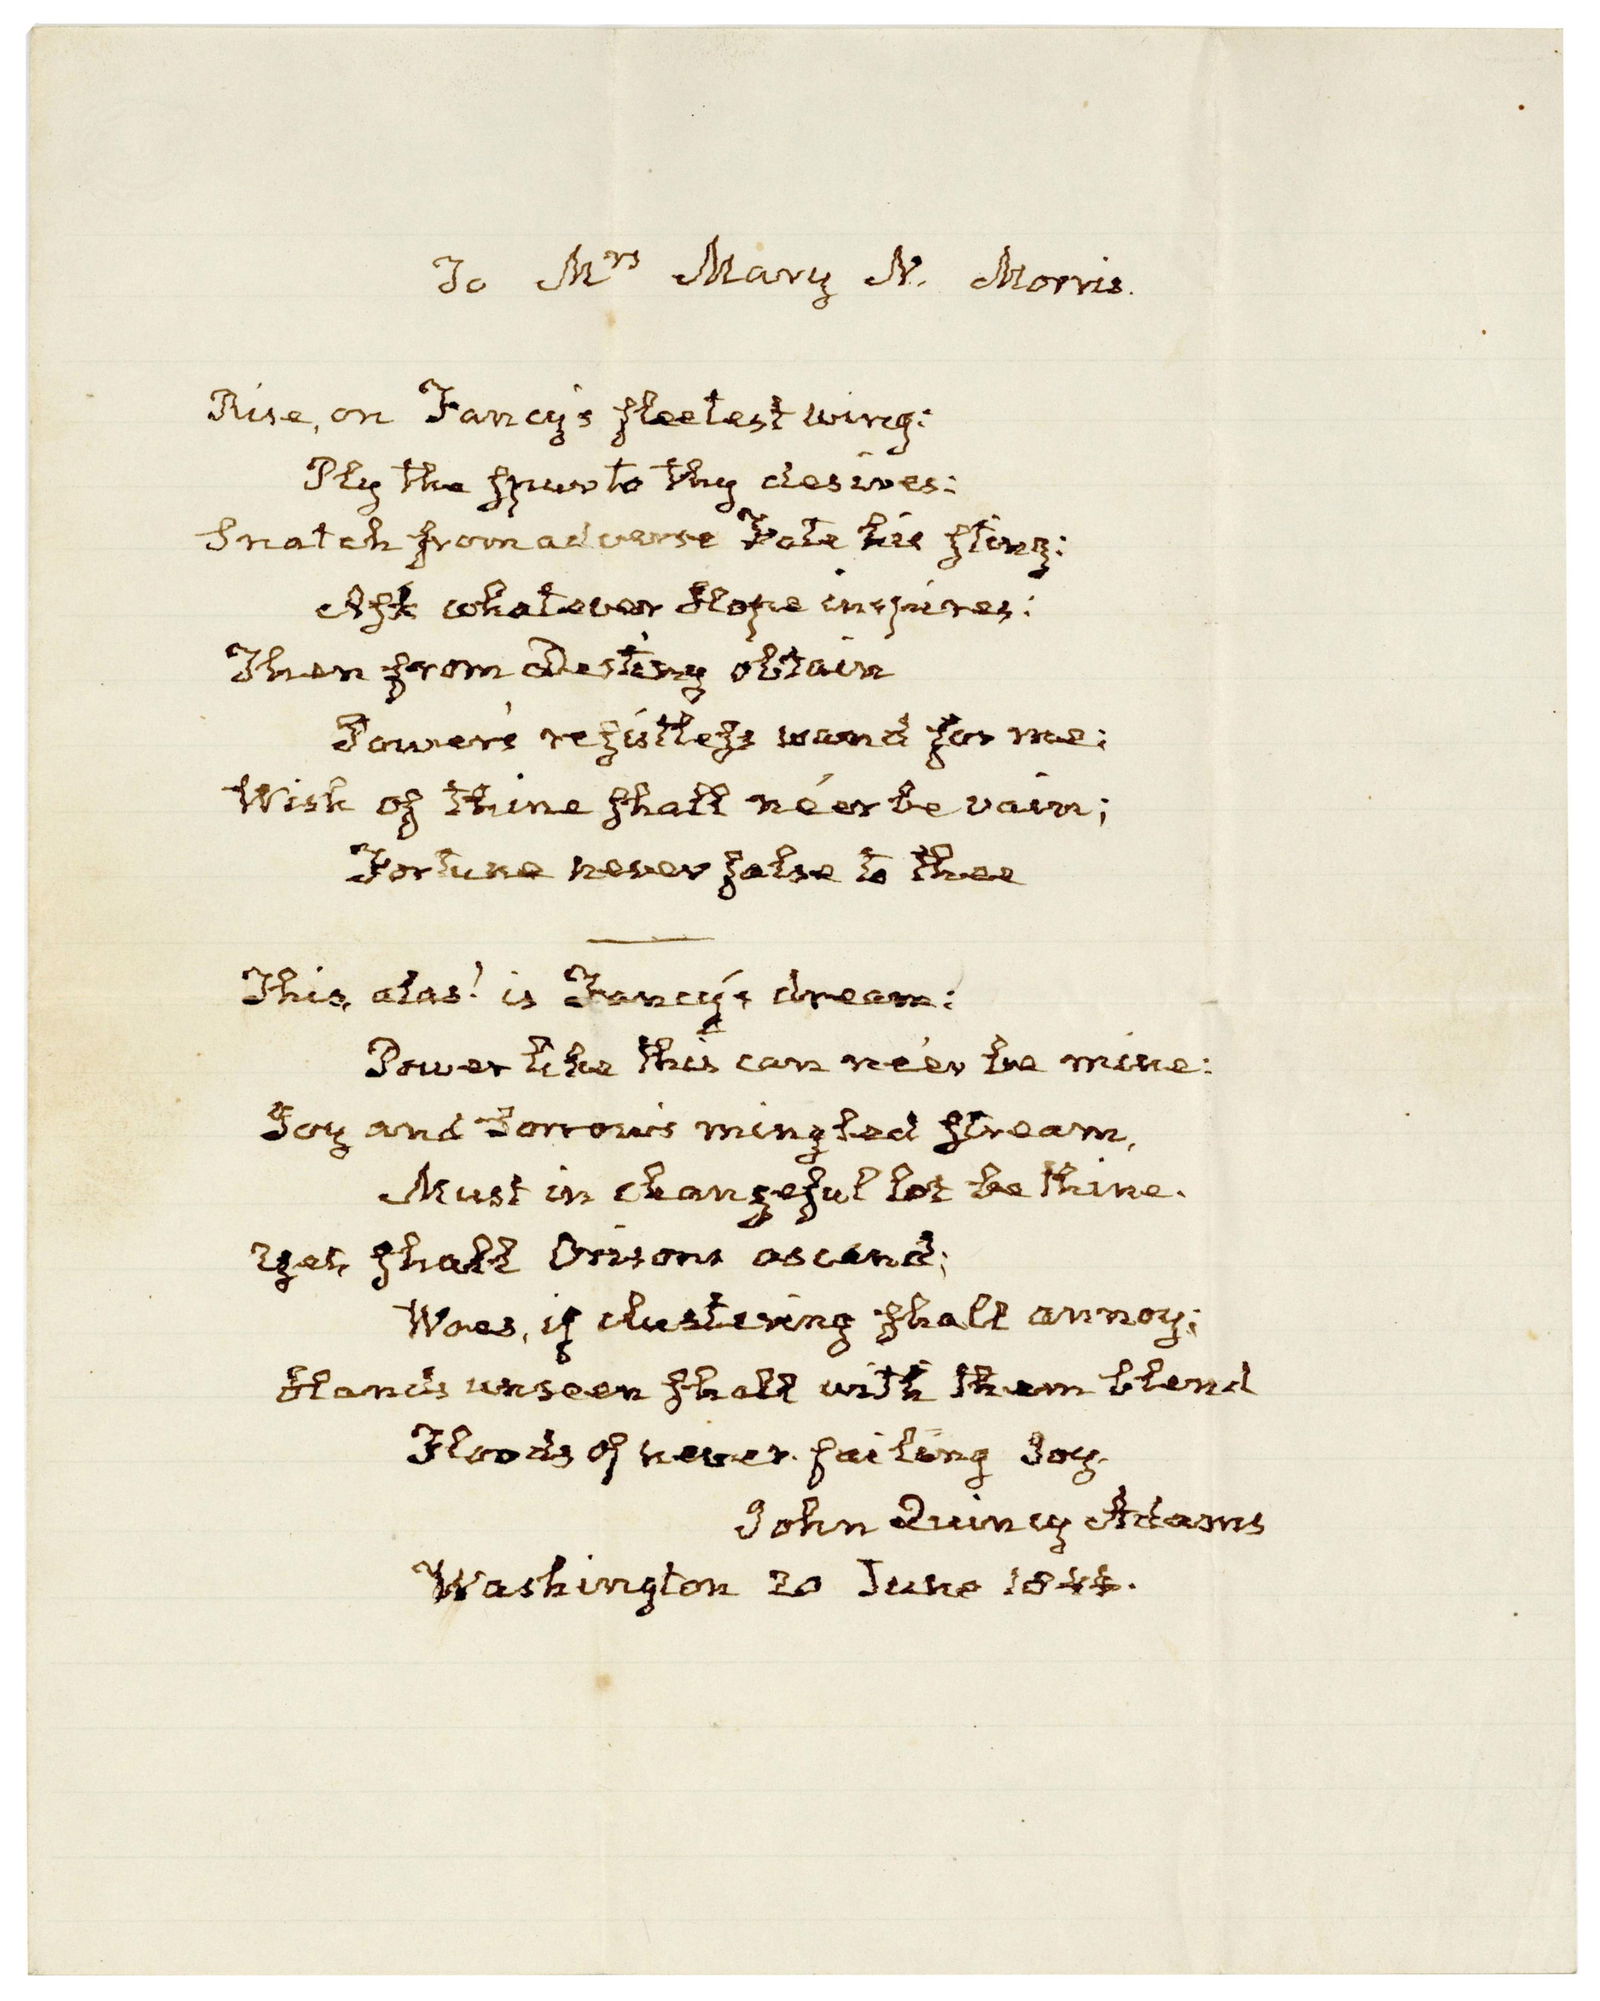 To Mrs Mary N. Morris.
Rise, on Fancy's fleetest wing:
Ply the ſpur to thy desires:
Snatch from adverse Fate his ſting:
Aſk whatever Hope inspires:
Then from Destiny obtain
Power's reſistleſs wand for me;
Wish of thine ſhall né'er be vain;
Fortune never false to thee
This, alas! is Fancy's dream:
Power like this can ne'er be mine:
Joy and Sorrow's mingled ſtream,
Must in changeful lot be thine.
Yet, ſhall Orisons ascend;
Woes, if clustering ſhall annoy;
Hands unseen ſhall with them blend
Floods of never-failing Joy.
John Quincy Adams
Washington 20 June 1844.